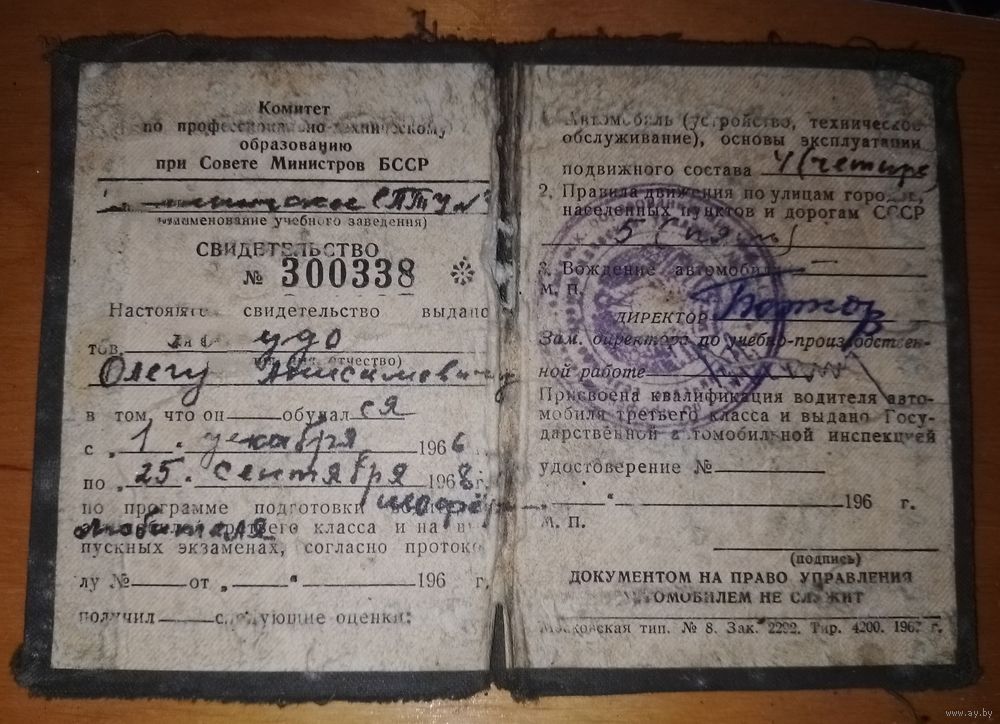 Комитет
по профессионально-техническому
образованию
при Совете Министров БССР
СПТУ №
(наименование учебного заведения)
СВИДЕТЕЛЬСТВО
№ 300338
Настоящее свидетельство выдано
тов.
отчество)
Олегу Максимовичу
в том, что он обучался
с „1" декабря 1966 г.
по „25" сентября 1968 г.
по программе подготовки шофёр
любителя третьего класса и на вы-
пускных экзаменах, согласно протоко-
лу № от „ " 196 г.
получил следующие оценки:
Автомобиль (устройство, техническое
обслуживание), основы эксплуатации
подвижного состава 4 (четыре)
2. Правила движения по улицам городов,
населенных пунктов и дорогам СССР
5 (пять)
3. Вождение автомобиля
М. П.
ДИРЕКТОР
Зам. директора по учебно-производствен-
ной работе
Присвоена квалификация водителя авто-
мобиля третьего класса и выдано Госу-
дарственной автомобильной инспекцией
удостоверение №
" 196 г.
М. П.
(подпись)
ДОКУМЕНТОМ НА ПРАВО УПРАВЛЕНИЯ
АВТОМОБИЛЕМ НЕ СЛУЖИТ
Московская тип. № 8. Зак. 2292. Тир. 4200. 1967 г.
www.ay.by